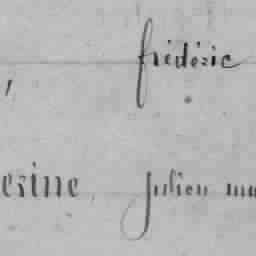 frédéric
, 
erine, julien ma